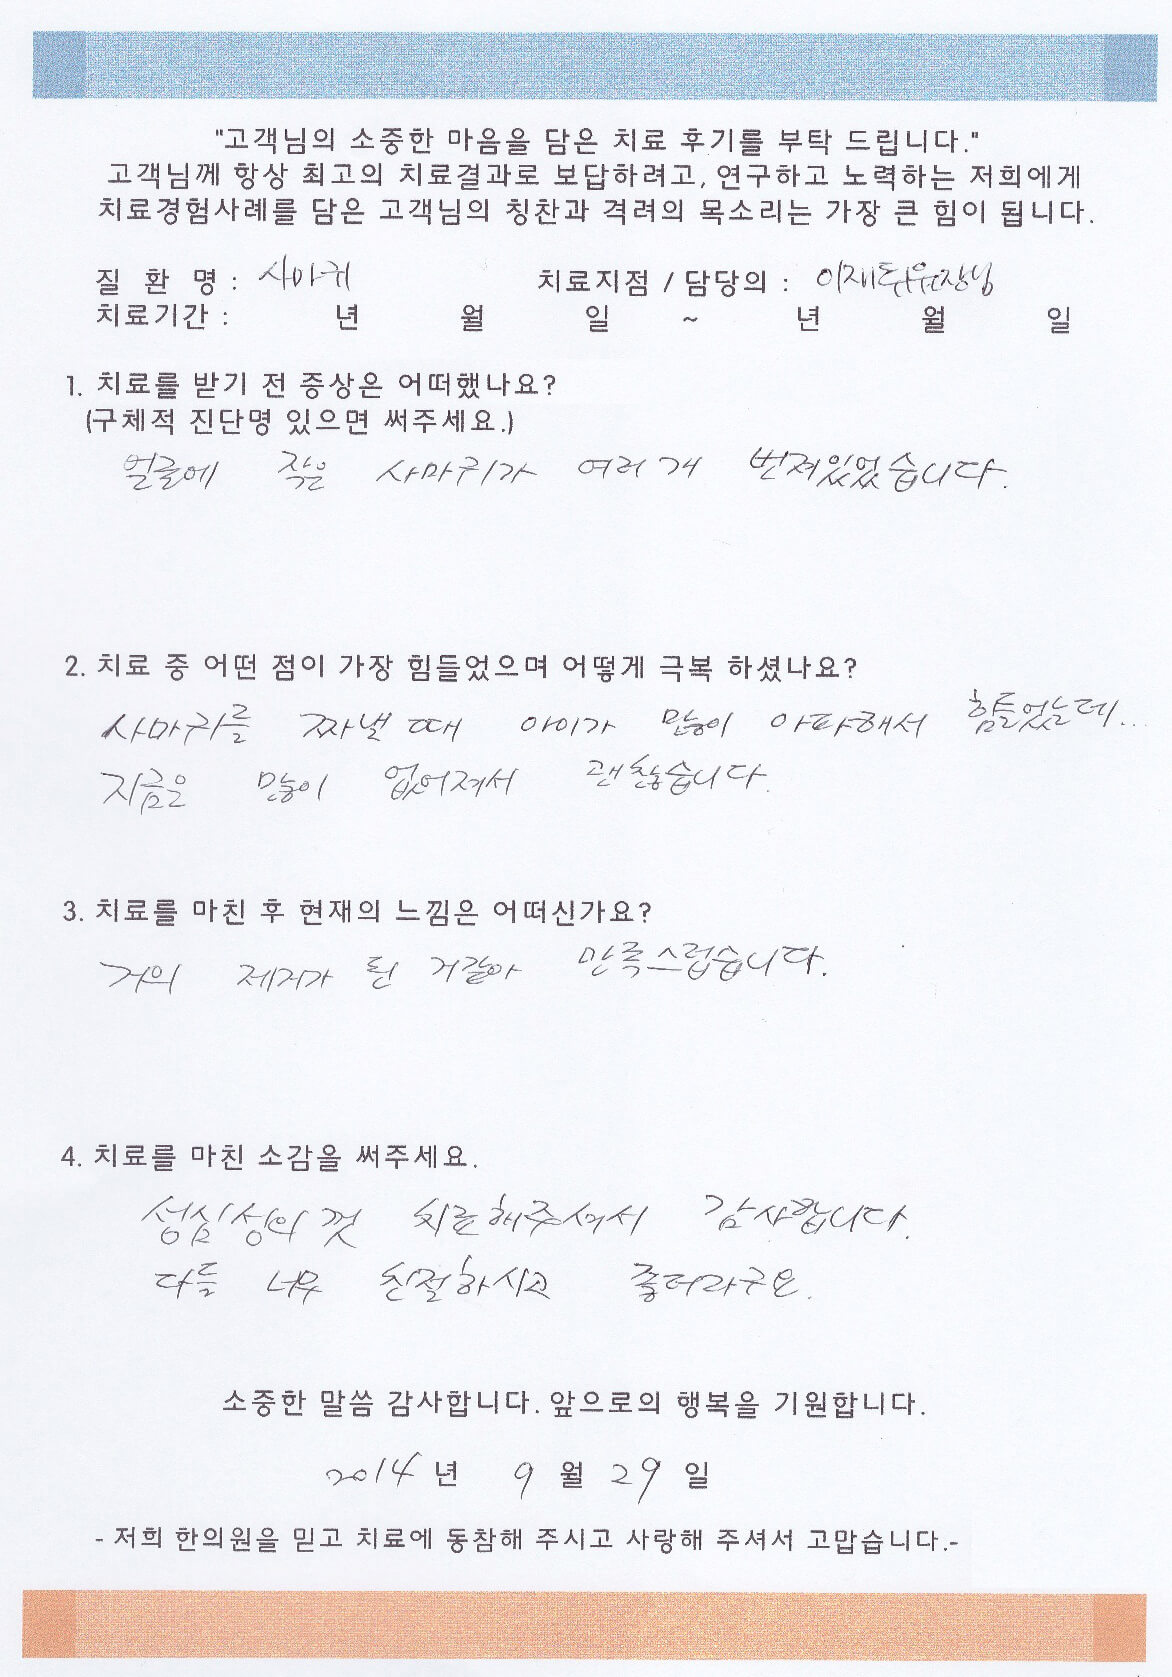 "고객님의 소중한 마음을 담은 치료 후기를 부탁 드립니다."
고객님께 항상 최고의 치료결과로 보답하려고, 연구하고 노력하는 저희에게
치료경험사례를 담은 고객님의 칭찬과 격려의 목소리는 가장 큰 힘이 됩니다.
질 환 명 : 사마귀 치료지점 / 담당의 : 이재휘원장님
치료기간 : 년 월 일 ~ 년 월 일
1. 치료를 받기 전 증상은 어떠했나요?
(구체적 진단명 있으면 써주세요.)
얼굴에 작은 사마귀가 여러개 번져있었습니다.
2. 치료 중 어떤 점이 가장 힘들었으며 어떻게 극복 하셨나요?
사마귀를 짜낼때 아이가 많이 아파해서 힘들었는데...
지금은 많이 없어져서 괜찮습니다.
3. 치료를 마친 후 현재의 느낌은 어떠신가요?
거의 제거가 된 거같아 만족스럽습니다.
4. 치료를 마친 소감을 써주세요.
성심성의껏 치료해주셔서 감사합니다.
다들 너무 친절하시고 좋더라구요.
소중한 말씀 감사합니다. 앞으로의 행복을 기원합니다.
2014 년 9 월 29 일
- 저희 한의원을 믿고 치료에 동참해 주시고 사랑해 주셔서 고맙습니다.-